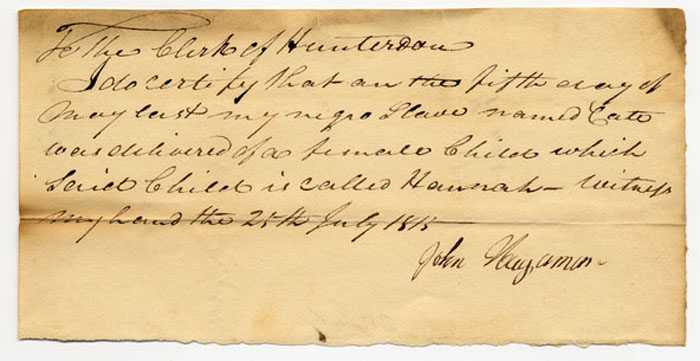 To The Clerk of Hunterdon
I do certify that on the fifth day of
May last my negro Slave named Cate
was delivered of a female Child which
Said Child is called Hannah - Witness
my hand the 25th July 1815
John